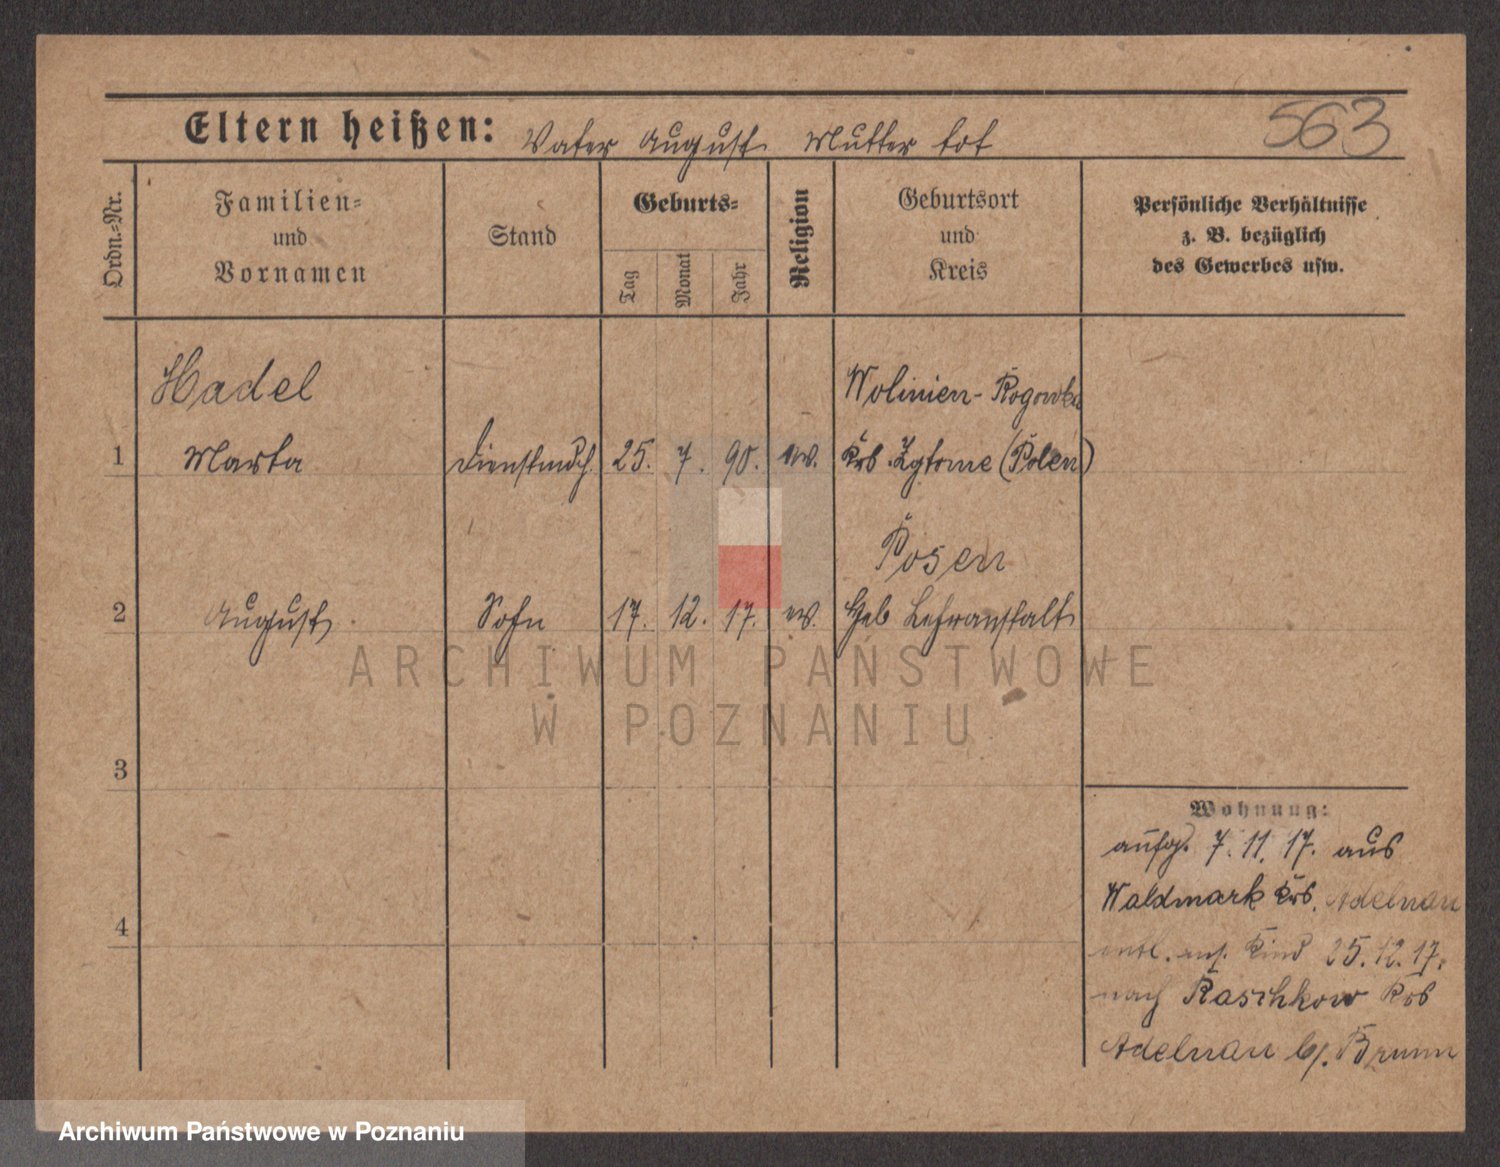 563
Eltern heißen: Vater August Mutter tot
Ordn.-Nr.
Familien-
und
Vornamen
Stand
Geburts-
Tag
Monat
Jahr
Religion
Geburtsort
und
Kreis
Persönliche Verhältnisse
z. B. bezüglich
des Gewerbes usw.
Hadel
Wolinien- Rogowka
1 Marta Dienstmdch. 25. 7. 90. ev. Krs. Zytome (Polen)
Posen
2 August Sohn 17. 12. 17. ev. Heb Lehranstalt
3
4
Wohnung:
aufg. 7. 11. 17. aus
Waldmark Krs. Adelnau
entl. Kind 25. 12. 17.
nach Raschkow Krs
Adelnau b/. Brunn
ARCHIWUM PAŃSTWOWE
W POZNANIU
Archiwum Państwowe w Poznaniu